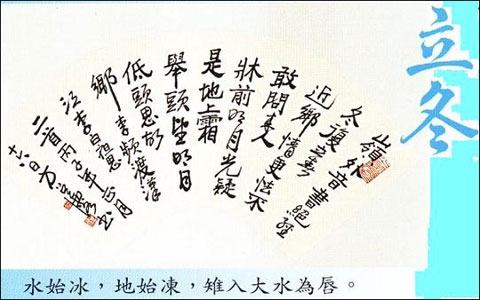 立冬
嶺外音書絕經
冬復春
近鄉情更怯不
敢問来人
牀前明月光疑
是地上霜
舉頭望明月
低頭思故
鄉 李頻渡漢
江李白憶
二首丙子年月
十六日
水始冰，地始凍，雉入大水為唇。